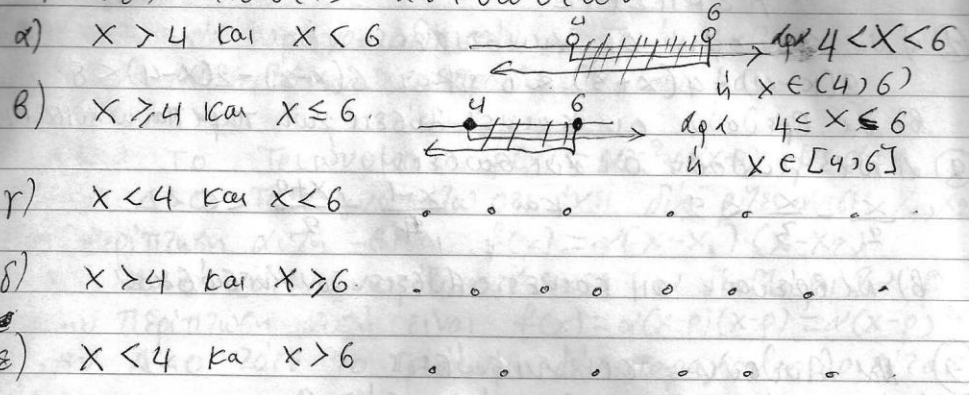 α) x > 4 και x < 6 4 6 άρα 4 < x < 6
ή x ∈ (4,6)
β) x ≥ 4 και x ≤ 6. 4 6 άρα 4 ≤ x ≤ 6
ή x ∈ [4,6]
γ) x < 4 και x < 6 . . . . . . .
δ) x > 4 και x ≥ 6. . . . . . . . .
ε) x < 4 κα x > 6 . . . . . .